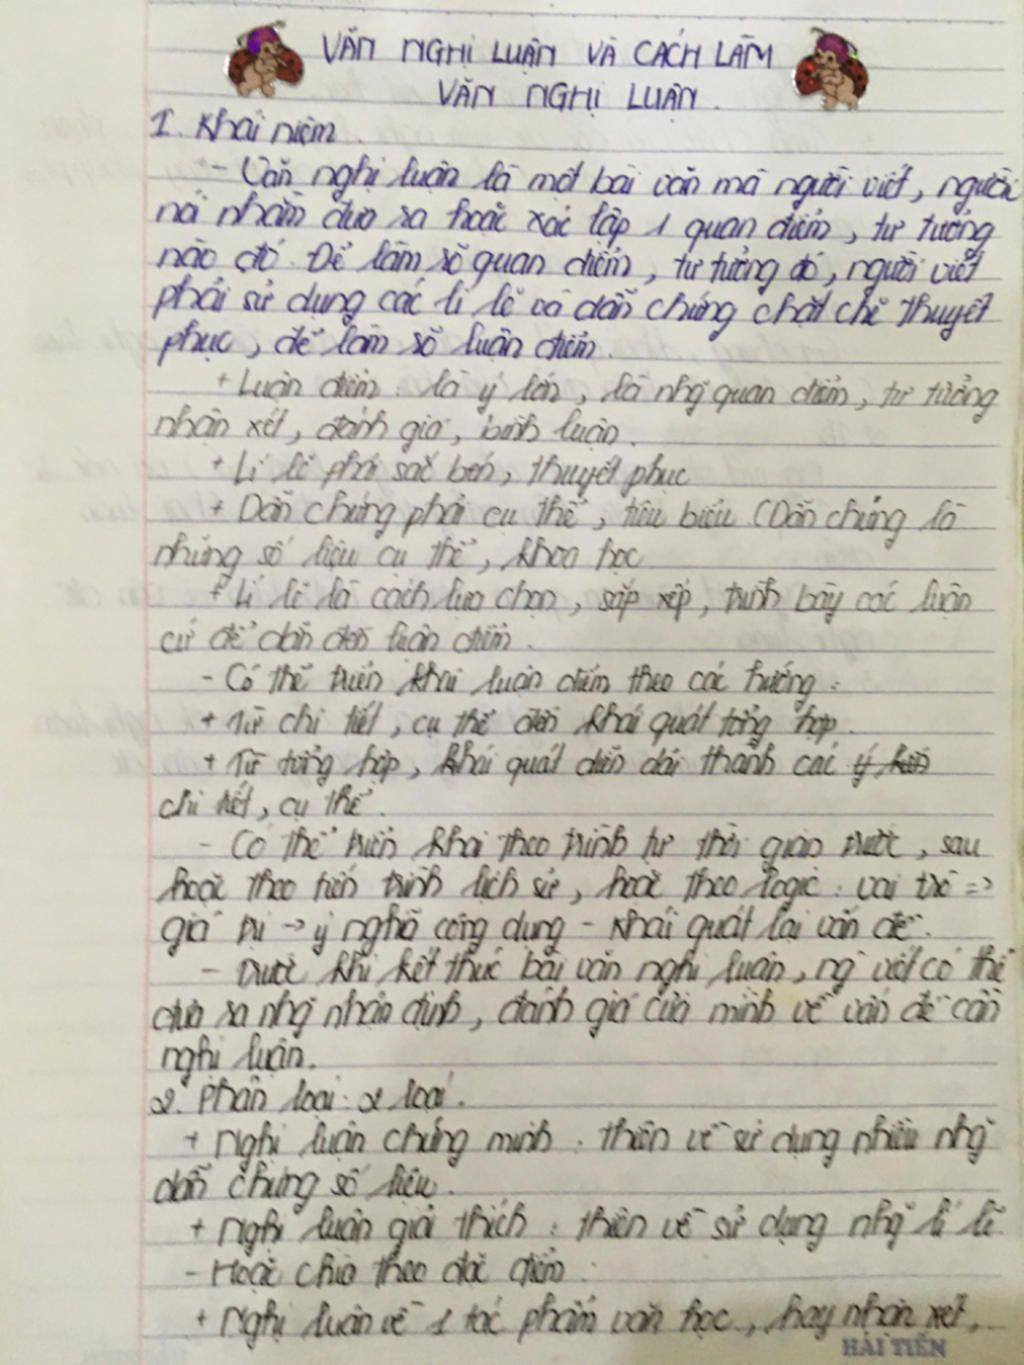 VĂN NGHỊ LUẬN VÀ CÁCH LÀM
VĂN NGHỊ LUẬN.
1. Khái niệm
- Văn nghị luận là một bài văn mà người viết, người
nói nhằm đưa ra hoặc xác lập 1 quan điểm, tư tưởng
nào đó. Để làm rõ quan điểm, tư tưởng đó, người viết
phải sử dụng các lí lẽ và dẫn chứng chặt chẽ thuyết
phục, để làm rõ luận điểm.
+ Luận điểm: là ý lớn, là nhg̃ quan điểm, tư tưởng
nhận xét, đánh giá, bình luận.
+ Lí lẽ phải sắc bén, thuyết phục
+ Dẫn chứng phải cụ thể, tiêu biểu. (Dẫn chứng là
những số liệu cụ thể, khoa học
+ Lí lẽ là cách lựa chọn, sắp xếp, trình bày các luận
cứ để dẫn đến luận điểm.
- Có thể triển khai luận điểm theo các hướng:
+ Từ chi tiết, cụ thể đến khái quát tổng hợp.
+ Từ tổng hợp, khái quát diễn dải thành các
chi tiết, cụ thể.
- Có thể triển khai theo trình tự thời gian trước, sau
hoặc theo tiến trình lịch sử, hoặc theo logic: vai trò =>
giá trị -> ý nghĩa công dụng - khái quát lại vấn đề.
- Trước khi kết thúc bài văn nghị luận, ng̀ viết có thể
đưa ra nhg̃ nhận định, đánh giá của mình về vấn đề cần
nghị luận.
2. Phân loại: 2 loại.
+ Nghị luận chứng minh: thiên về sử dụng nhiều nhg̃
dẫn chứng số liệu.
+ Nghị luận giải thích: thiên về sử dụng nhg̃ lí lẽ.
- Hoặc chia theo đặc điểm:
+ Nghị luận về 1 tác phẩm văn học, hay nhận xét,...
HẢI TIẾN